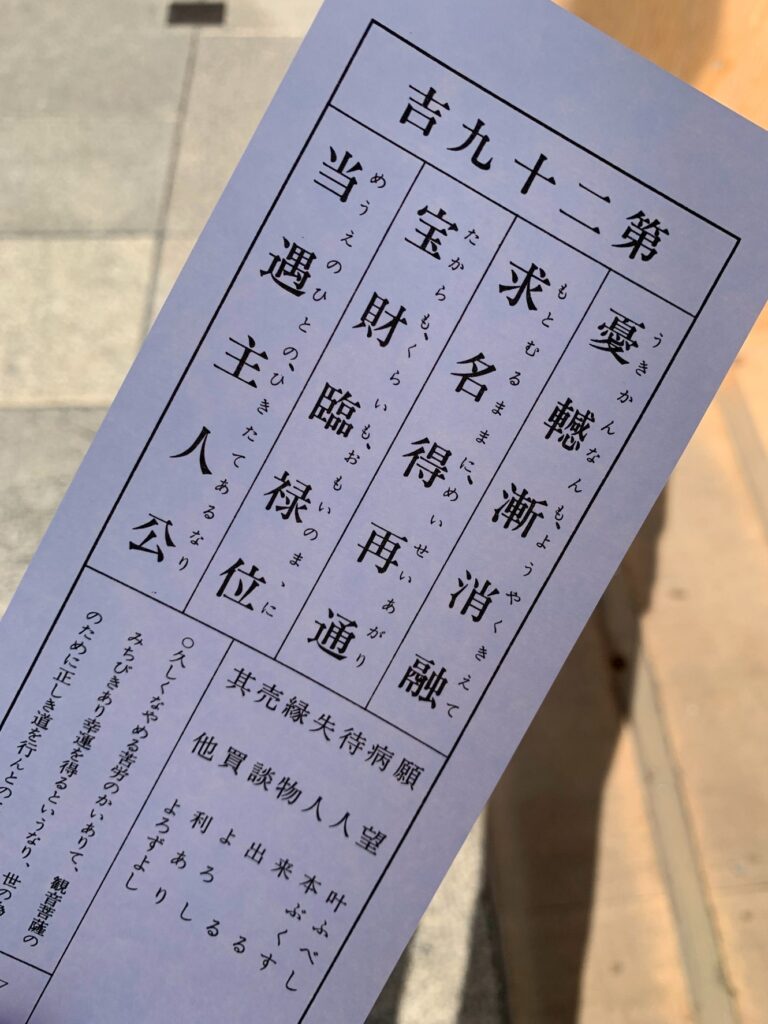 第二十九吉
憂轗漸消融
うきかんなんも、ようやくきえて
求名得再通
もとむるままに、めいせいあがり
宝財臨禄位
たからも、くらいも、おもいのまゝに
当遇主人公
めうえのひとの、ひきたてあるなり
願望 叶ふべし
病人 本ぶくす
待人 来る
失物 出る
縁談 よろし
売買 利あり
其他 よろずよし
○久しくなやめる苦労のかいありて、観音菩薩の
みちびきあり幸運を得るというなり、世の
のために正しき道を行んとの